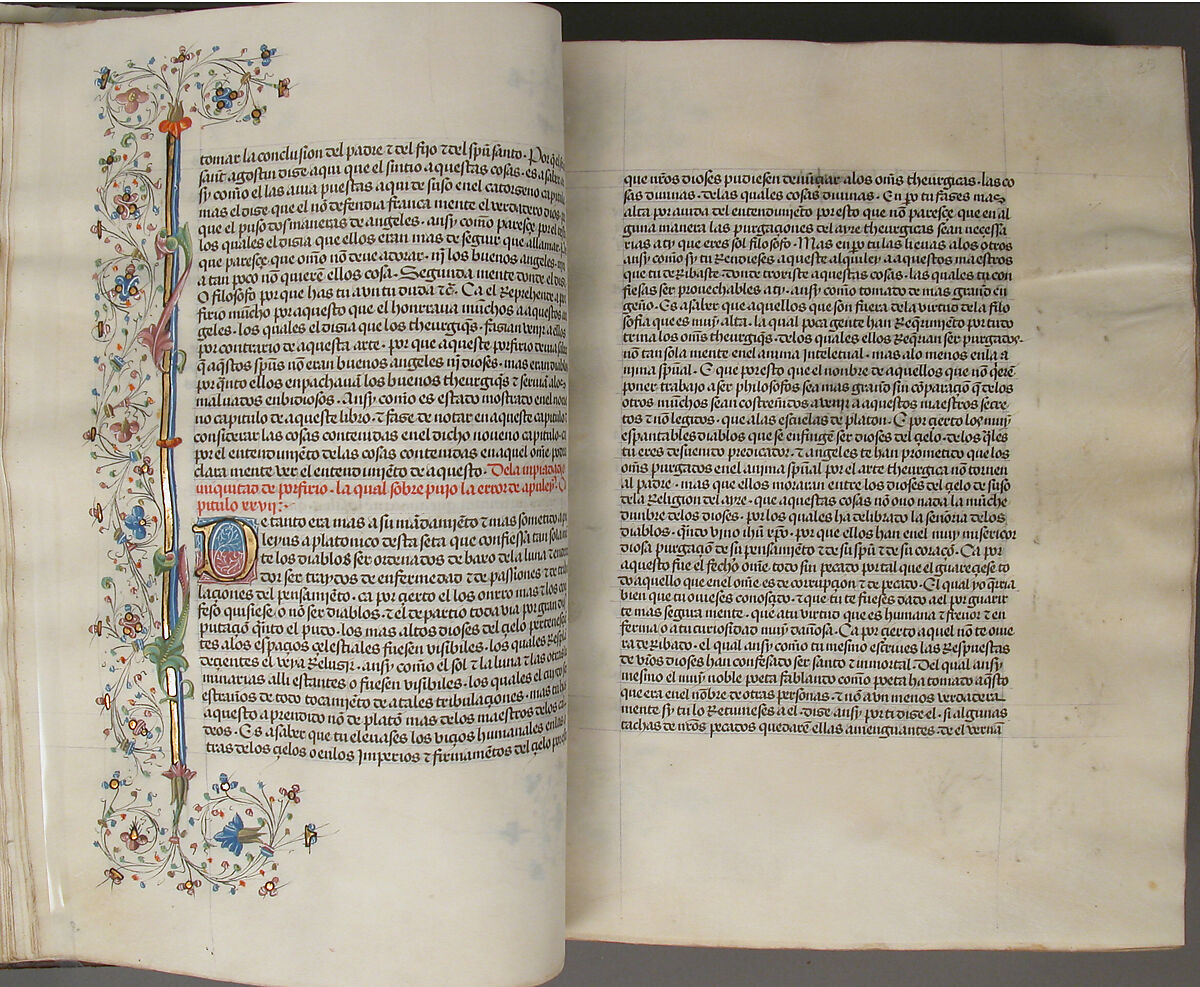 tomar la conclusion del padre ⁊ del fijo ⁊ del spũ santo · Por q̃ el
sant agostin dise aqui que el sintio aquestas cosas · es asaber
sy com̃o el las auia puestas aqui de suso enel catorseno capitu
mas el dise que el nõ defendia franca mente el verdadero dios · por
que el puso dos maneras de angeles · ansy com̃o paresçe por el
los quales el disia que ellos eran mas de seguir que allamar ·
que paresçe que om̃o nõ deue adorar · nj̃ los buenos angeles ·
a tan poco nõ quierẽ ellos cosa · Segunda mente donde el dis
O filosofo por que has tu avn tu duda ⁊c̃ · Ca el Reprehende a por
firio mũcho por aquesto que el honrraua mũchos a aquestos an
geles · los quales el disia que los theurgiq̃s · fasian venir a ellos
por contrario de aquesta arte · por que aqueste porfirio deuia saber
q̃ aq̃stos spũs nõ eran buenos angeles nj̃ dioses · mas eran diablos
por q̃nto ellos enpachauã los buenos theurgiq̃s ⁊ seruiã alos
maluados enbidiosos · Ansy com̃o es estado mostrado enel noue
no capitulo de aqueste libro · ⁊ fase de notar en aqueste capitulo ⁊
considerar las cosas contenidas enel dicho noueno capitulo · ca
por el entendimiẽto delas cosas contenidas en aquel om̃e podra
clara mente ver el entendimiẽto de aquesto · Dela inpiadad
iniquitad de porfirio · la qual sobre pujo la error de apuley · C
pitulo xxvij :·
De tanto era mas a su mãdamiẽto ⁊ mas sometido a
leyus a platonico desta seta que confiessa tan sola m
te los diablos ser ordenados de baxo dela luna ⁊
dor ser traydos de enfermedad ⁊ de passiones ⁊ de tri
laçiones del pensamiẽto · ca por çierto el los onrro mas ⁊ los con
feso quisiese o nõ ser diablos · ⁊ el departio toda via por gran di
putaçiõ q̃nto el pudo · los mas altos dioses del çielo perteneçiẽ
tes alos espaçios çelestiales fuesen visibiles · los quales Respla
deçientes el veya Relusir · ansy com̃o el sol ⁊ la luna ⁊ las otras
minarias alli estantes o fuesen visibiles · los quales el cuydo
estraños de todo tocamiẽto de atales tribulaçiones · mas tu has
aquesto aprendido nõ de platõ mas de los maestros delos cal
deos · Es asaber que tu eleuases los viçios humanales enlas
tras delos çielos o enlos Imperios ⁊ firmamẽtos del çielo por
que nr̃os dioses pudiesen denũçiar alos om̃s theurgicas · las co
sas diuinas · delas quales cosas diuinas · En po tu fases mas
alta por auida del entendimiẽto por esto que nõ paresçe que en al
guna manera las purgaçiones del ayre theurgicas sean neçessa
rias a ty que eres sol filosofo · Mas en po tu las lieuas alos otros
ansy com̃o sy tu Rendieses a aqueste alquiley · a aquestos maestros
que tu deRibaste · donde troxiste aquestas cosas · las quales tu con
fiesas ser prouechables a ty · ansy com̃o tomado de mas grand en
geño · Es asaber que aquellos que son fuera dela virtud dela filo
sofia que es muy alta · la qual poca gente han Requimj̃ẽto por tu do
trina los om̃s theurgiq̃s · delos quales ellos Reqrian ser purgados ·
nõ tan sola mente enel anima Inteletual · mas alo menos enla a
nima spũal · E que por esto que el nonbre de aquellos que nõ q̃erẽ
poner trabajo a ser philosofos sea mas grand sin cõparaçõ q̃ delos
otros mũchos sean costreñidos a venir a aquestos maestros secre
tos ⁊ nõ legitos · que alas escuelas de platon · E por çierto los muy
espantables diablos que se enfingẽ ser dioses del çielo · delos q̃les
tu eres desuiento predicador · ⁊ angeles te han prometido que los
om̃s purgados enel anima spũal por el arte theurgica nõ tornen
al padre · mas que ellos moraran entre los dioses del çielo de suso
dela Religion del ayre · que aquestas cosas nõ ovo nada la mũche
dunbre delos dioses · por los quales ha delibrado la señoria delos
diablos · q̃ndo vino ih̃u xp̃o · por que ellos han enel muy misericor
diosa purgaçõ de su pensamiẽto ⁊ de su spũ ⁊ de su coraçõ · Ca por
aquesto fue el fecho om̃e todo sin pecado por tal que el guareçiese to
do aquello que enel om̃e es de corrupçion ⁊ de pecado · El qual yo q̃rria
bien que tu ouieses conosçido · ⁊ que tu te fueses dado a el por guarir
te mas segura mente · que atu virtud que es humana ⁊ frenor ⁊ en
ferma o atu curiosidad muy dañosa · Ca por çierto aquel nõ te ouie
ra deRibado · el qual ansy com̃o tu mesmo escriues las Respuestas
de vr̃os dioses han confesado ser santo ⁊ inmortal · Del qual ansy
mesmo el muy noble poeta fablando com̃o poeta ha tomado aq̃sto
que era enel nõbre de otras personas · ⁊ nõ avn menos verdadera
mente sy tu lo Retuuieses a el · dise ansy por ti dise el · si algunas
tachas de nr̃os pecados quedarẽ ellas amenguantes · de el verniã